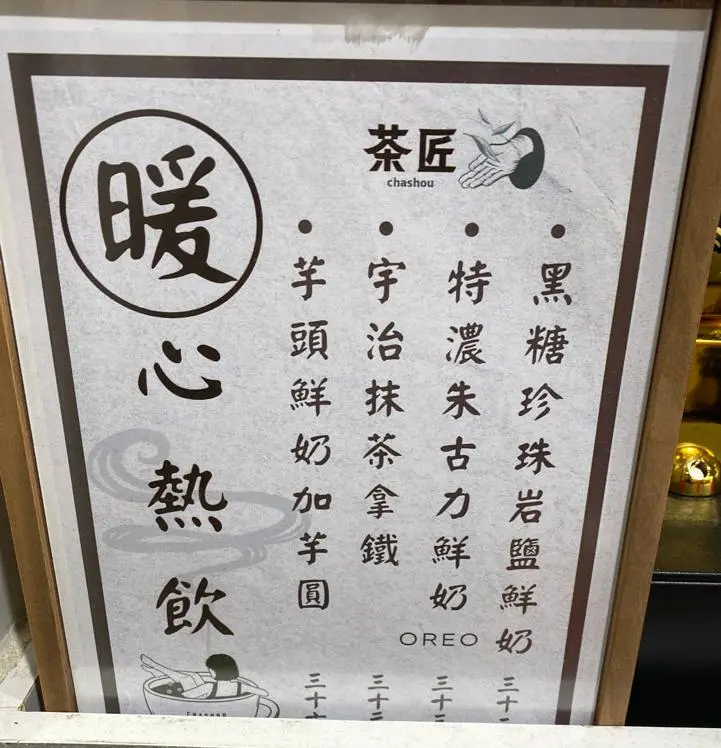 茶匠
chashou
黑糖珍珠岩鹽鮮奶
三十
特濃朱古力鮮奶
OREO
三十
宇治抹茶拿鐵
三十
芋頭鮮奶加芋圓
三十
暖心熱飲
CHASHOU